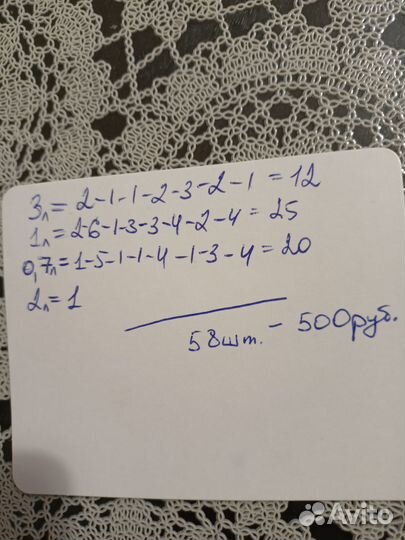 3л = 2-1-1-2-3-2-1 = 12
1л = 2-6-1-3-3-4-2-4 = 25
0,7л = 1-5-1-1-4-1-3-4 = 20
2л = 1
58шт. - 500руб.
Avito